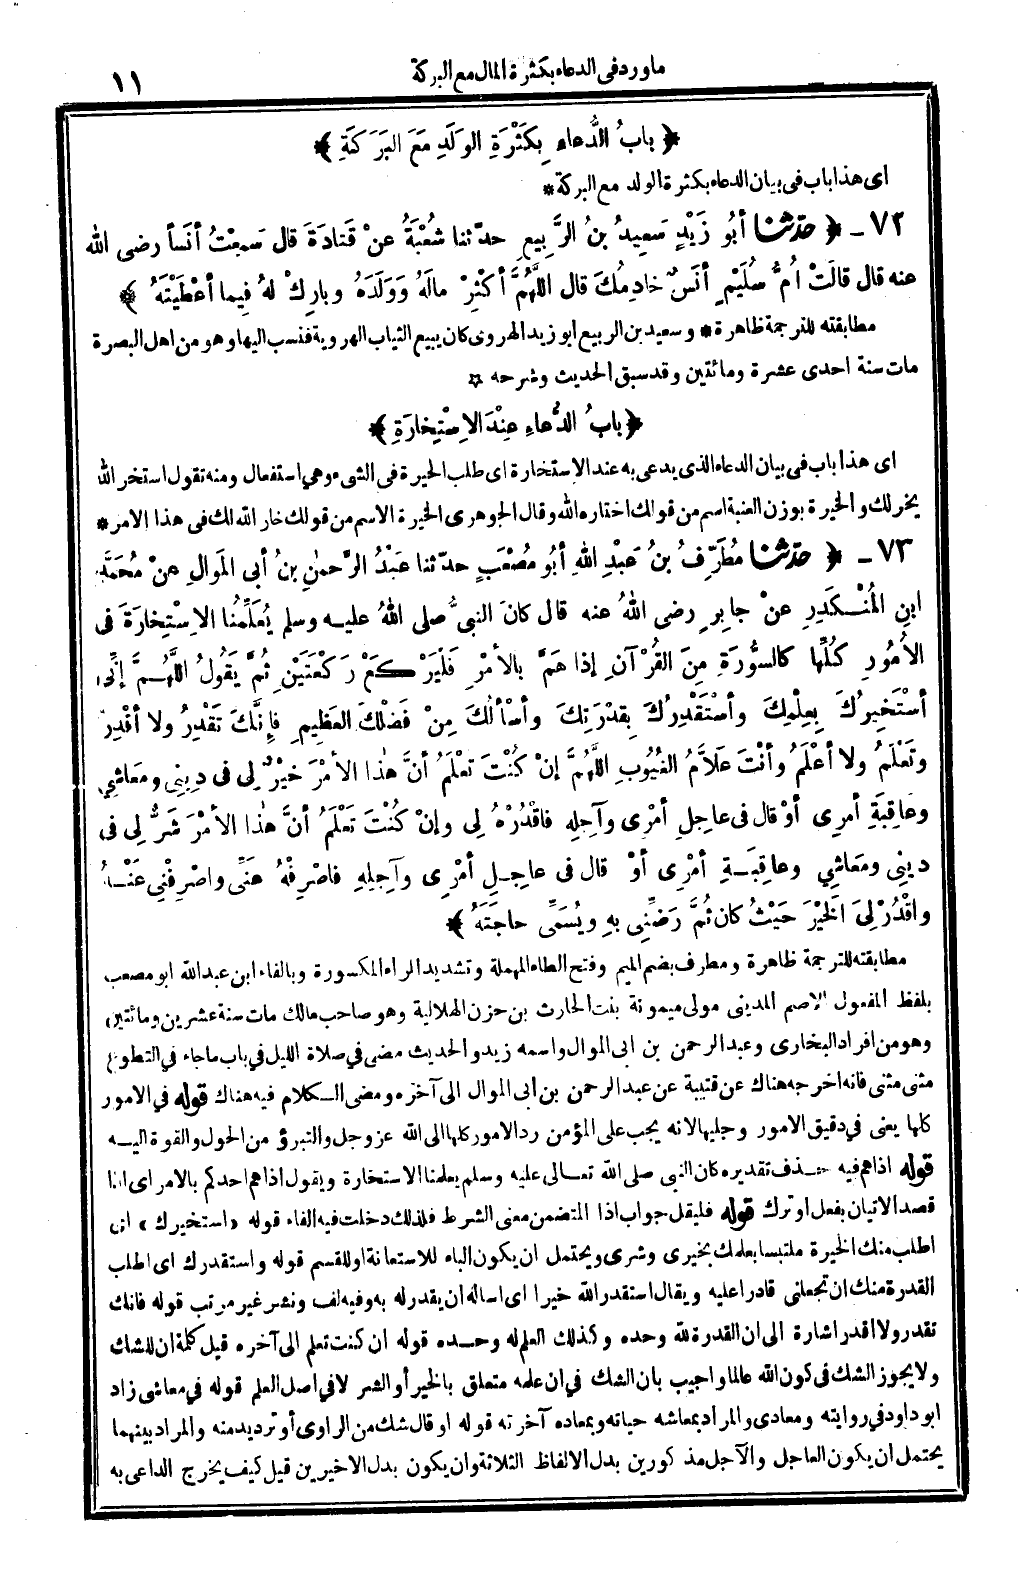 ما ورد فى الدعاء بكثرة المال مع البركة
١١
﴿ بابُ الدُّعاءِ بِكَثْرَةِ الوَلَدِ مَعَ البَرَكَةِ ﴾
اى هذا باب فى بيان الدعاء بكثرة الولد مع البركة *
٧٢ ـ ﴿ حدثنا أبُو زَيْدٍ سَعِيدُ بنُ الرَّبِيعِ حدّثنا شُعْبَةُ عنْ قَتادَةَ قال سَمِعْتُ أنَساً رضى الله
عنه قال قالَتْ أُمُّ سُلَيْمٍ أنَسٌ خادِمُكَ قال اللَّهُمَّ أكْثِرْ مالَهُ وَوَلَدَهُ وبارِكْ لهُ فِيما أعْطَيْتَهُ ﴾
مطابقته للترجمة ظاهرة * وسعيد بن الربيع ابو زيد الهروى كان يبيع الثياب الهروية فنسب اليها وهو من اهل البصرة
مات سنة احدى عشرة ومائتين وقد سبق الحديث وشرحه ☆
﴿ بابُ الدُّعاءِ عِنْدَ الاِسْتِخارَةِ ﴾
اى هذا باب فى بيان الدعاء الذى يدعى به عند الاستخارة اى طلب الخيرة فى الشىء وهى استفعال ومنه تقول استخر الله
يخر لك والخيرة بوزن العنبة اسم من قولك اختاره الله وقال الجوهرى الخيرة الاسم من قولك خار الله لك فى هذا الامر *
٧٣ ـ ﴿ حدثنا مُطَرِّفُ بنُ عَبْدِ اللهِ أبُو مُصْعَبٍ حدّثنا عَبْدُ الرَّحْمٰنِ بنُ أبى المَوالِ عنْ مُحَمَّدِ
ابنِ المُنْكَدِرِ عنْ جابِرٍ رضى اللهُ عنه قال كانَ النبيُّ صلى اللهُ عليه وسلم يُعَلِّمُنا الاِسْتِخارَةَ فى
الأُمُورِ كُلِّها كالسُّورَةِ مِنَ القُرْآنِ إذا هَمَّ بالأمْرِ فَلْيَرْكَعْ رَكْعَتَيْنِ ثُمَّ يَقُولُ اللَّهُمَّ إنِّى
أسْتَخِيرُكَ بِعِلْمِكَ وأسْتَقْدِرُكَ بِقُدْرَتِكَ وأسْألُكَ مِنْ فَضْلِكَ العَظِيمِ فإنَّكَ تَقْدِرُ ولا أقْدِرُ
وتَعْلَمُ ولا أعْلَمُ وأنْتَ عَلاَّمُ الغُيُوبِ اللَّهُمَّ إنْ كُنْتَ تَعْلَمُ أنَّ هٰذا الأمْرَ خيْرٌ لِى فى دِينِى ومَعاشِى
وعاقِبَةِ أمرِى أوْ قال فى عاجِلِ أمْرِى وآجِلِهِ فاقْدُرْهُ لِى وإنْ كُنْتَ تَعْلَمُ أنَّ هٰذا الأمْرَ شَرٌّ لِى فى
دِينِى ومَعاشِي وعاقِبَةِ أمْرِى أوْ قال فى عاجِلِ أمْرِى وآجِلِهِ فاصْرِفْهُ عَنِّى واصْرِفْنِى عَنْهُ
واقْدُرْ لِىَ الخَيْرَ حَيْثُ كان ثُمَّ رَضِّنِى بهِ ويُسَمِّى حاجَتَهُ ﴾
مطابقته للترجمة ظاهرة ومطرف بضم الميم وفتح الطاء المهملة وتشديد الراء المكسورة وبالفاء ابن عبد الله ابو مصعب
بلفظ المفعول الاصم المدينى مولى ميمونة بنت الحارث بن حزن الهلالية وهو صاحب مالك مات سنة عشرين ومائتين
وهو من افراد البخارى وعبد الرحمن بن ابى الموال واسمه زيد والحديث مضى فى صلاة الليل فى باب ما جاء فى التطوع
مثنى مثنى فانه اخرجه هناك عن قتيبة عن عبد الرحمن بن ابى الموال الى آخره ومضى الكلام فيه هناك قوله فى الامور
كلها يعنى فى دقيق الامور وجليها لانه يجب على المؤمن رد الامور كلها الى الله عز وجل والتبرؤ من الحول والقوة اليه
قوله اذا هم فيه حذف تقديره كان النبى صلى الله تعالى عليه وسلم يعلمنا الاستخارة ويقول اذا هم احدكم بالامر اى اذا
قصد الاتيان بفعل او ترك قوله فليقل جواب اذا المتضمن معنى الشرط فلذلك دخلت فيه الفاء قوله «استخيرك» اى
اطلب منك الخيرة ملتبسا بعلمك بخيرى وشرى ويحتمل ان يكون الباء للاستعانة او للقسم قوله واستقدرك اى اطلب
القدرة منك ان تجعلنى قادرا عليه ويقال استقدر الله خيرا اى اساله ان يقدر له به وفيه لف ونشر غير مرتب قوله فانك
تقدر ولا اقدر اشارة الى ان القدرة لله وحده وكذلك العلم له وحده قوله ان كنت تعلم الى آخره قيل كلمة ان للشك
ولا يجوز الشك فى كون الله عالما واجيب بان الشك فى ان علمه متعلق بالخير أو الشر لا فى اصل العلم قوله فى معاشى زاد
ابو داود فى روايته ومعادى والمراد بمعاشه حياته وبمعاده آخرته قوله او قال شك من الراوى أو ترديد منه والمراد بينهما
يحتمل ان يكون العاجل والآجل مذكورين بدل الالفاظ الثلاثة وان يكون بدل الاخيرين قيل كيف يخرج الداعى به